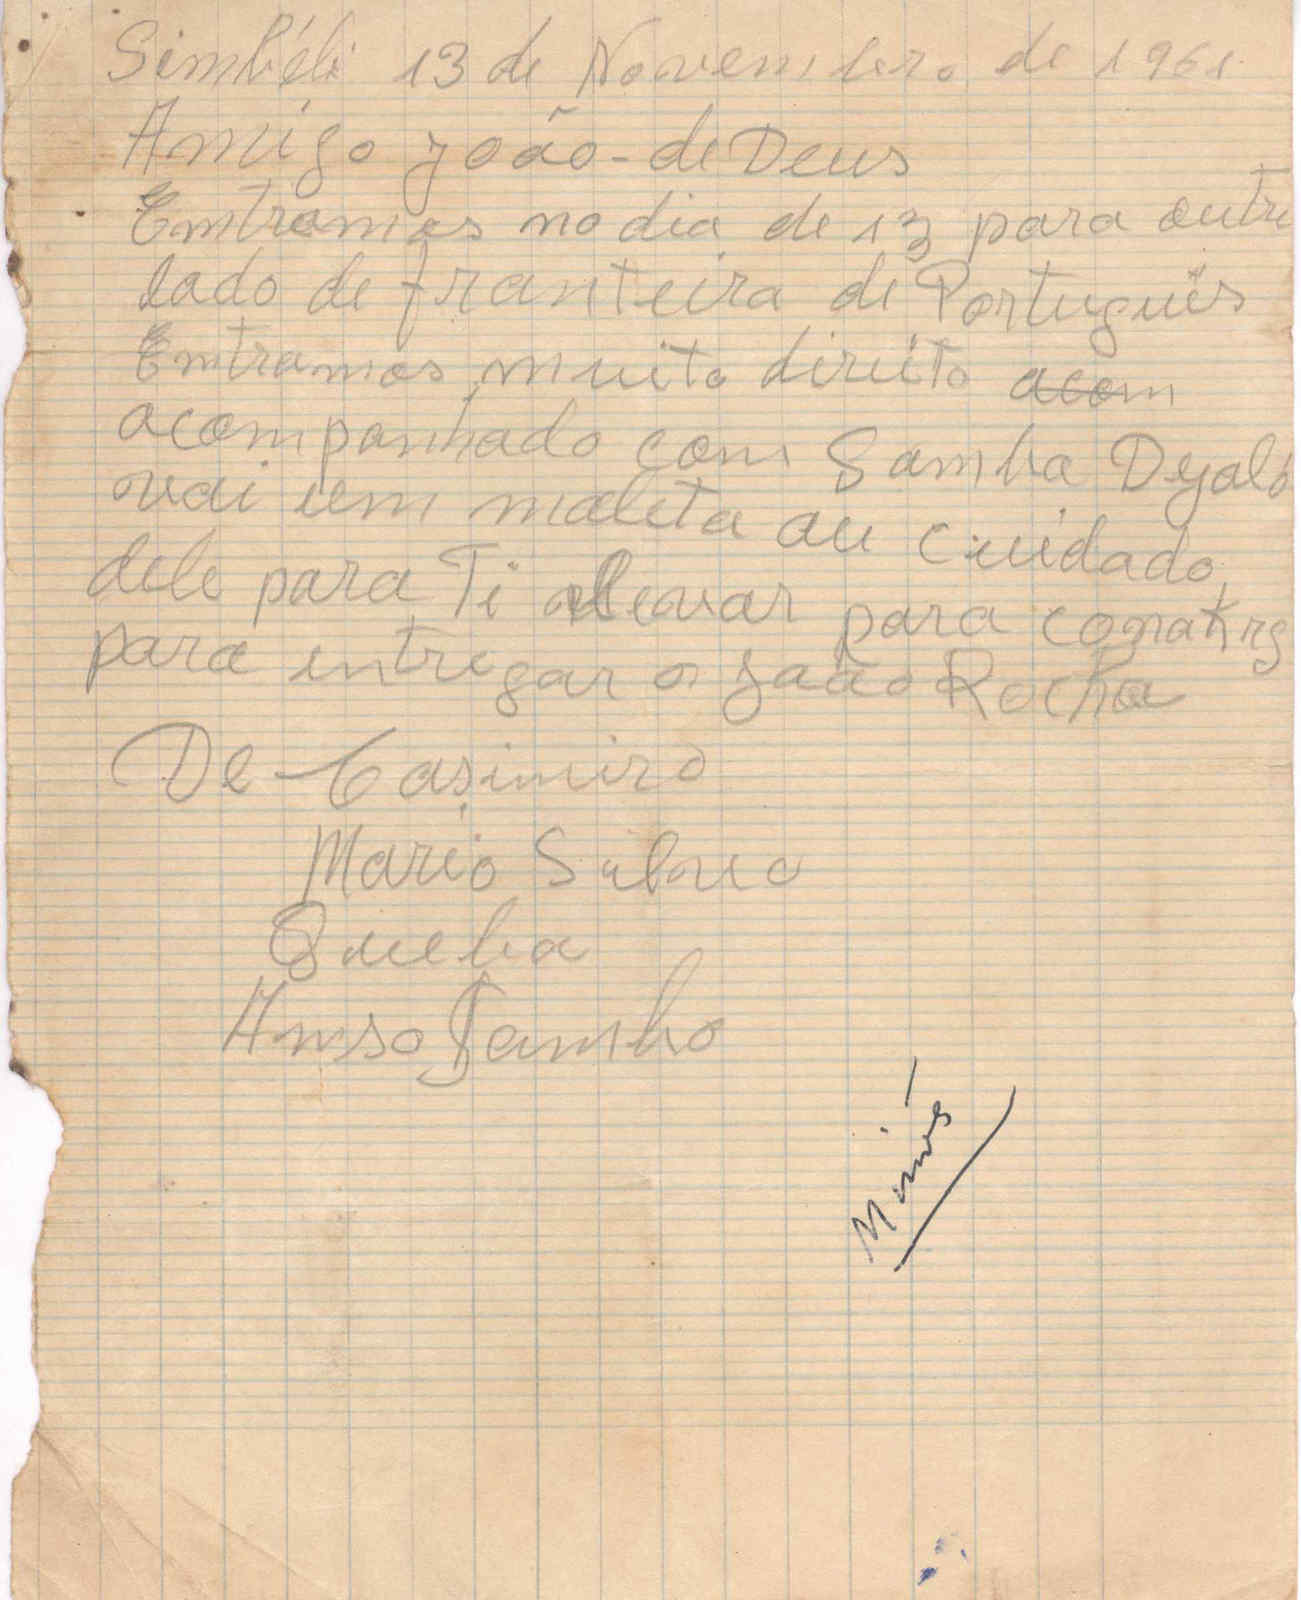 Simbéli 13 de Novembro de 1961
Amigo João-de Deus
Emtramos no dia de 13 para outro
lado de franteira de Portuguüs
Emtramos muito diruito acom
acompanhado com Samba Dyaló
vai uem maleta au cuidado
dele para Ti alevar para conakrg
para entregar o João Rocha
De Casimiro
Mario
Queba
Sambo